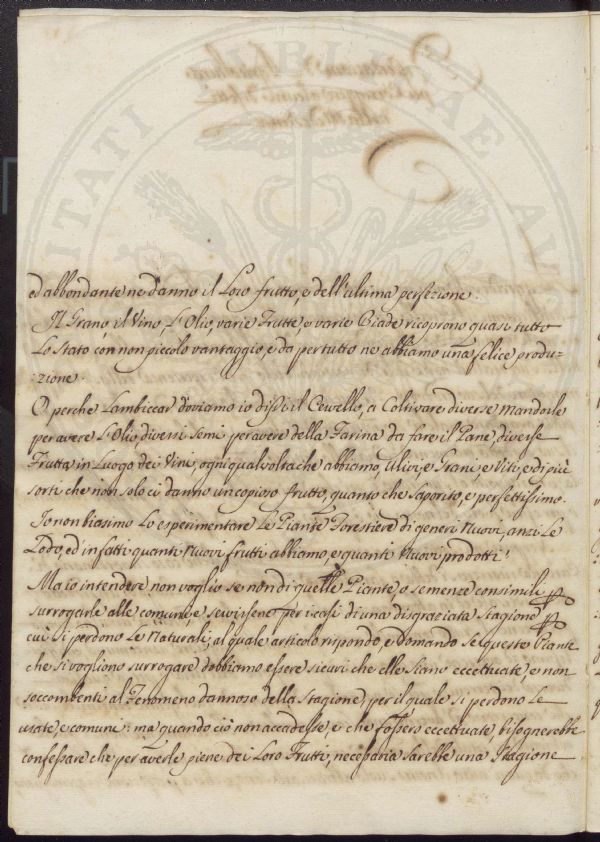 ed abbondante ne danno il Loro frutto, e dell'ultima perfezione.
Il Grano, il Vino, L'Olio, varie Frutte, e varie Biade ricoprono quasi tutto
Lo Stato con non piccolo vantaggio, e da per tutto ne abbiamo una felice produ-
zione.
O perche Lambiccar doviamo io dissi il Cervello, a Coltivare diverse mandorle
per avere L'Olio, diversi semi per avere della Farina da fare il Pane, diverse
Frutta in Luogo dei Vini, ogni qual volta che abbiamo, Ulivi, e Grani, e Viti, e di più
sorti che non solo ci danno un copioso frutto, quanto che Saporito, e perfettissimo.
Io non biasimo Lo esperimentare Le Piante Forestiere di generi Nuovi, anzi Le
Lodo, ed infatti quanti Nuovi frutti abbiamo, e quanti Nuovi prodotti!
Ma io intendere non voglio se non di quelle Piante, o semenze consimili
surrogarle alle comuni, e servirsene per i casi di una disgraziata Stagione
cui si perdono Le Naturali; al quale articolo rispondo, e domando se queste Piante
che si vogliono surrogare dobbiamo essere sicuri che elle siano eccettuate, e non
soccombenti al Fenomeno dannoso della stagione, per il quale si perdono Le
usate, e comuni: ma quando ciò non accadesse, e che fossero eccettuate, bisognerebbe
confessare che per averle piene dei Loro Frutti, necessaria sarebbe una Stagione